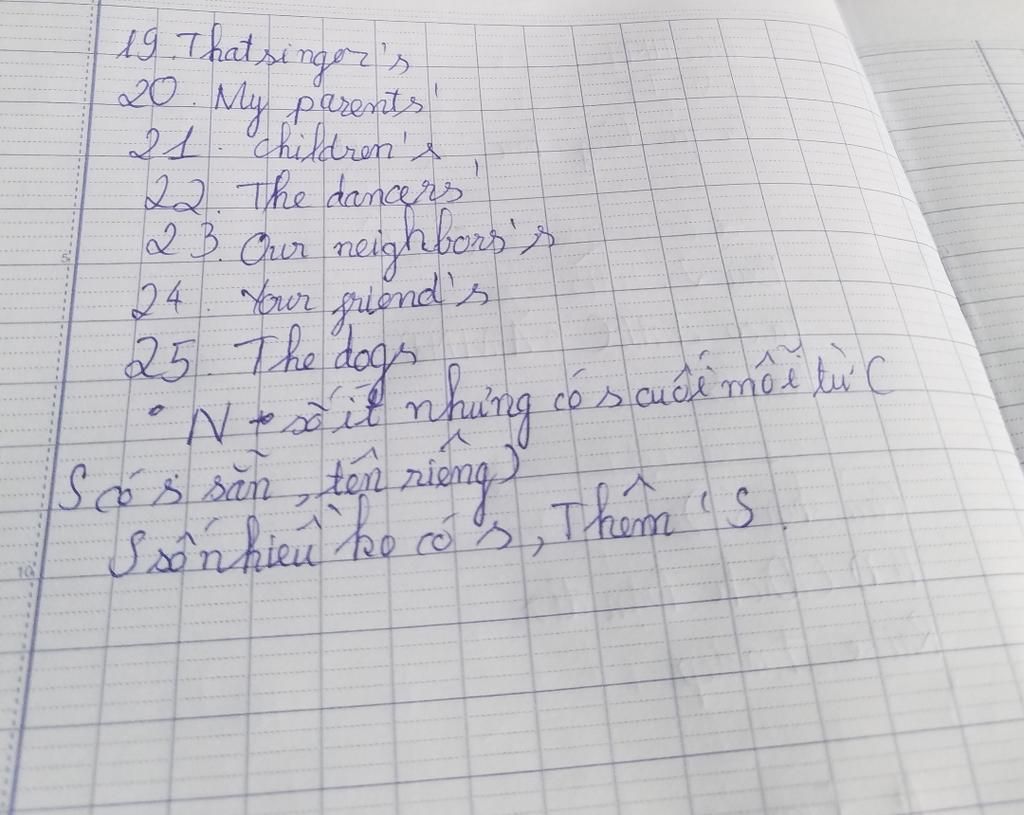 19. That singer's
20. My parents'
21. children's
22. The dancers'
23. Our neighbors's
24. Your friend's
25. The dogs
• N số ít nhưng có s cuối mỗi từ (
S có s sẵn, tên riêng)
S số nhiều ko có s, Thêm 's
5
10